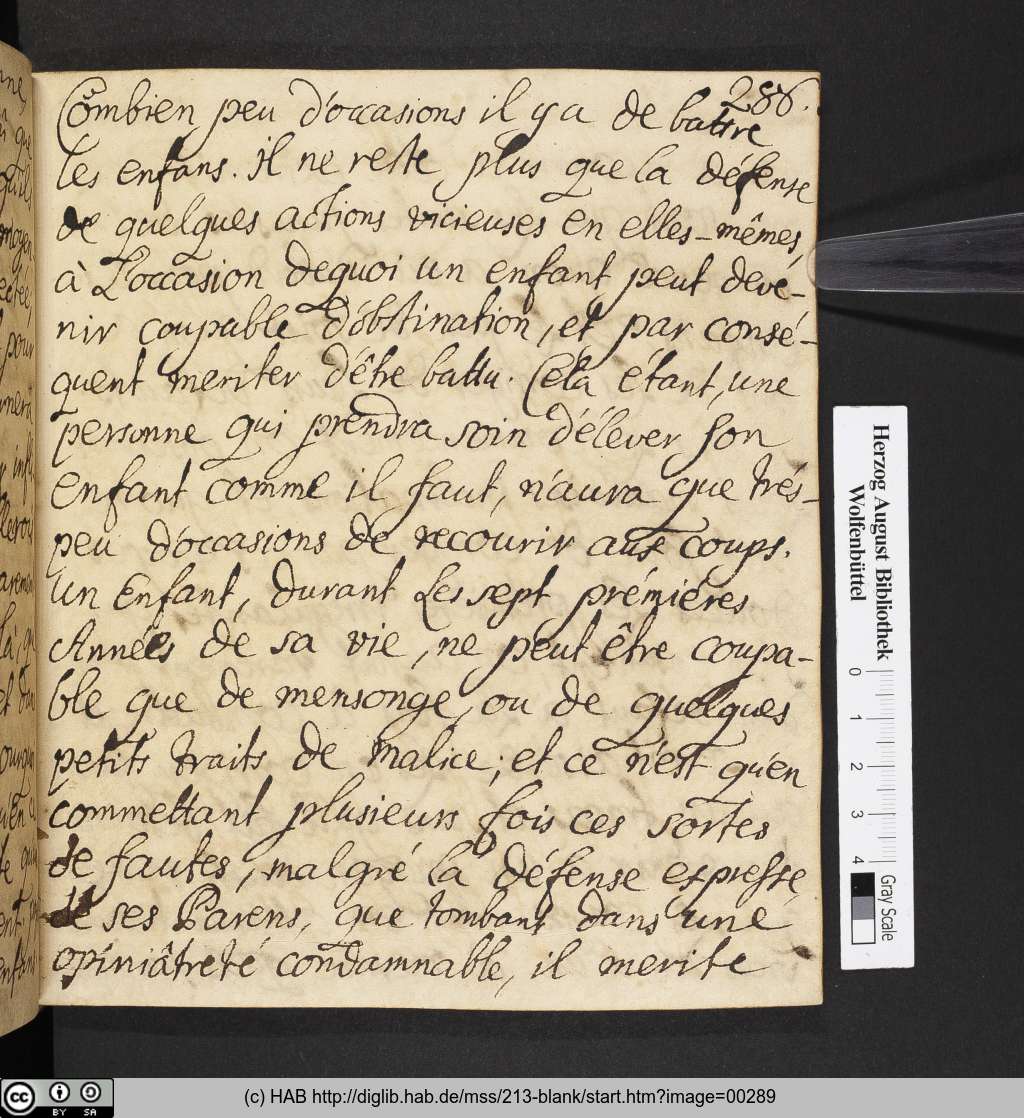 286.
Combien peu d'occasions il y a de battre
les enfans. Il ne reste plus que la défense
de quelques actions vicieuses en elles-mêmes,
à L'occasion dequoi un enfant peut deve-
nir coupable d'obstination, et par consé-
quent meriter d'être battu. Cela étant, une
personne qui prendra soin d'élever son
Enfant comme il faut, n'aura que trés-
peu d'occasions de recourir aux coups.
Un Enfant, durant Les sept prémiéres
Années de sa vie, ne peut être coupa-
ble que de mensonge, ou de quelques
petits traits de malice; et ce n'est qu'en
commettant plusieurs fois ces sortes
de fautes, malgré la défense expresse
de ses Parens, que tombant dans une
opiniâtreté condamnable, il merite
Herzog August Bibliothek
Wolfenbüttel
0 1 2 3 4
Gray Scale
cc BY SA
(c) HAB http://diglib.hab.de/mss/213-blank/start.htm?image=00289